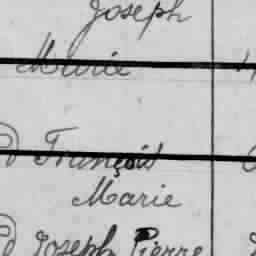 Joseph
Marie
François
Marie
Joseph Pierre